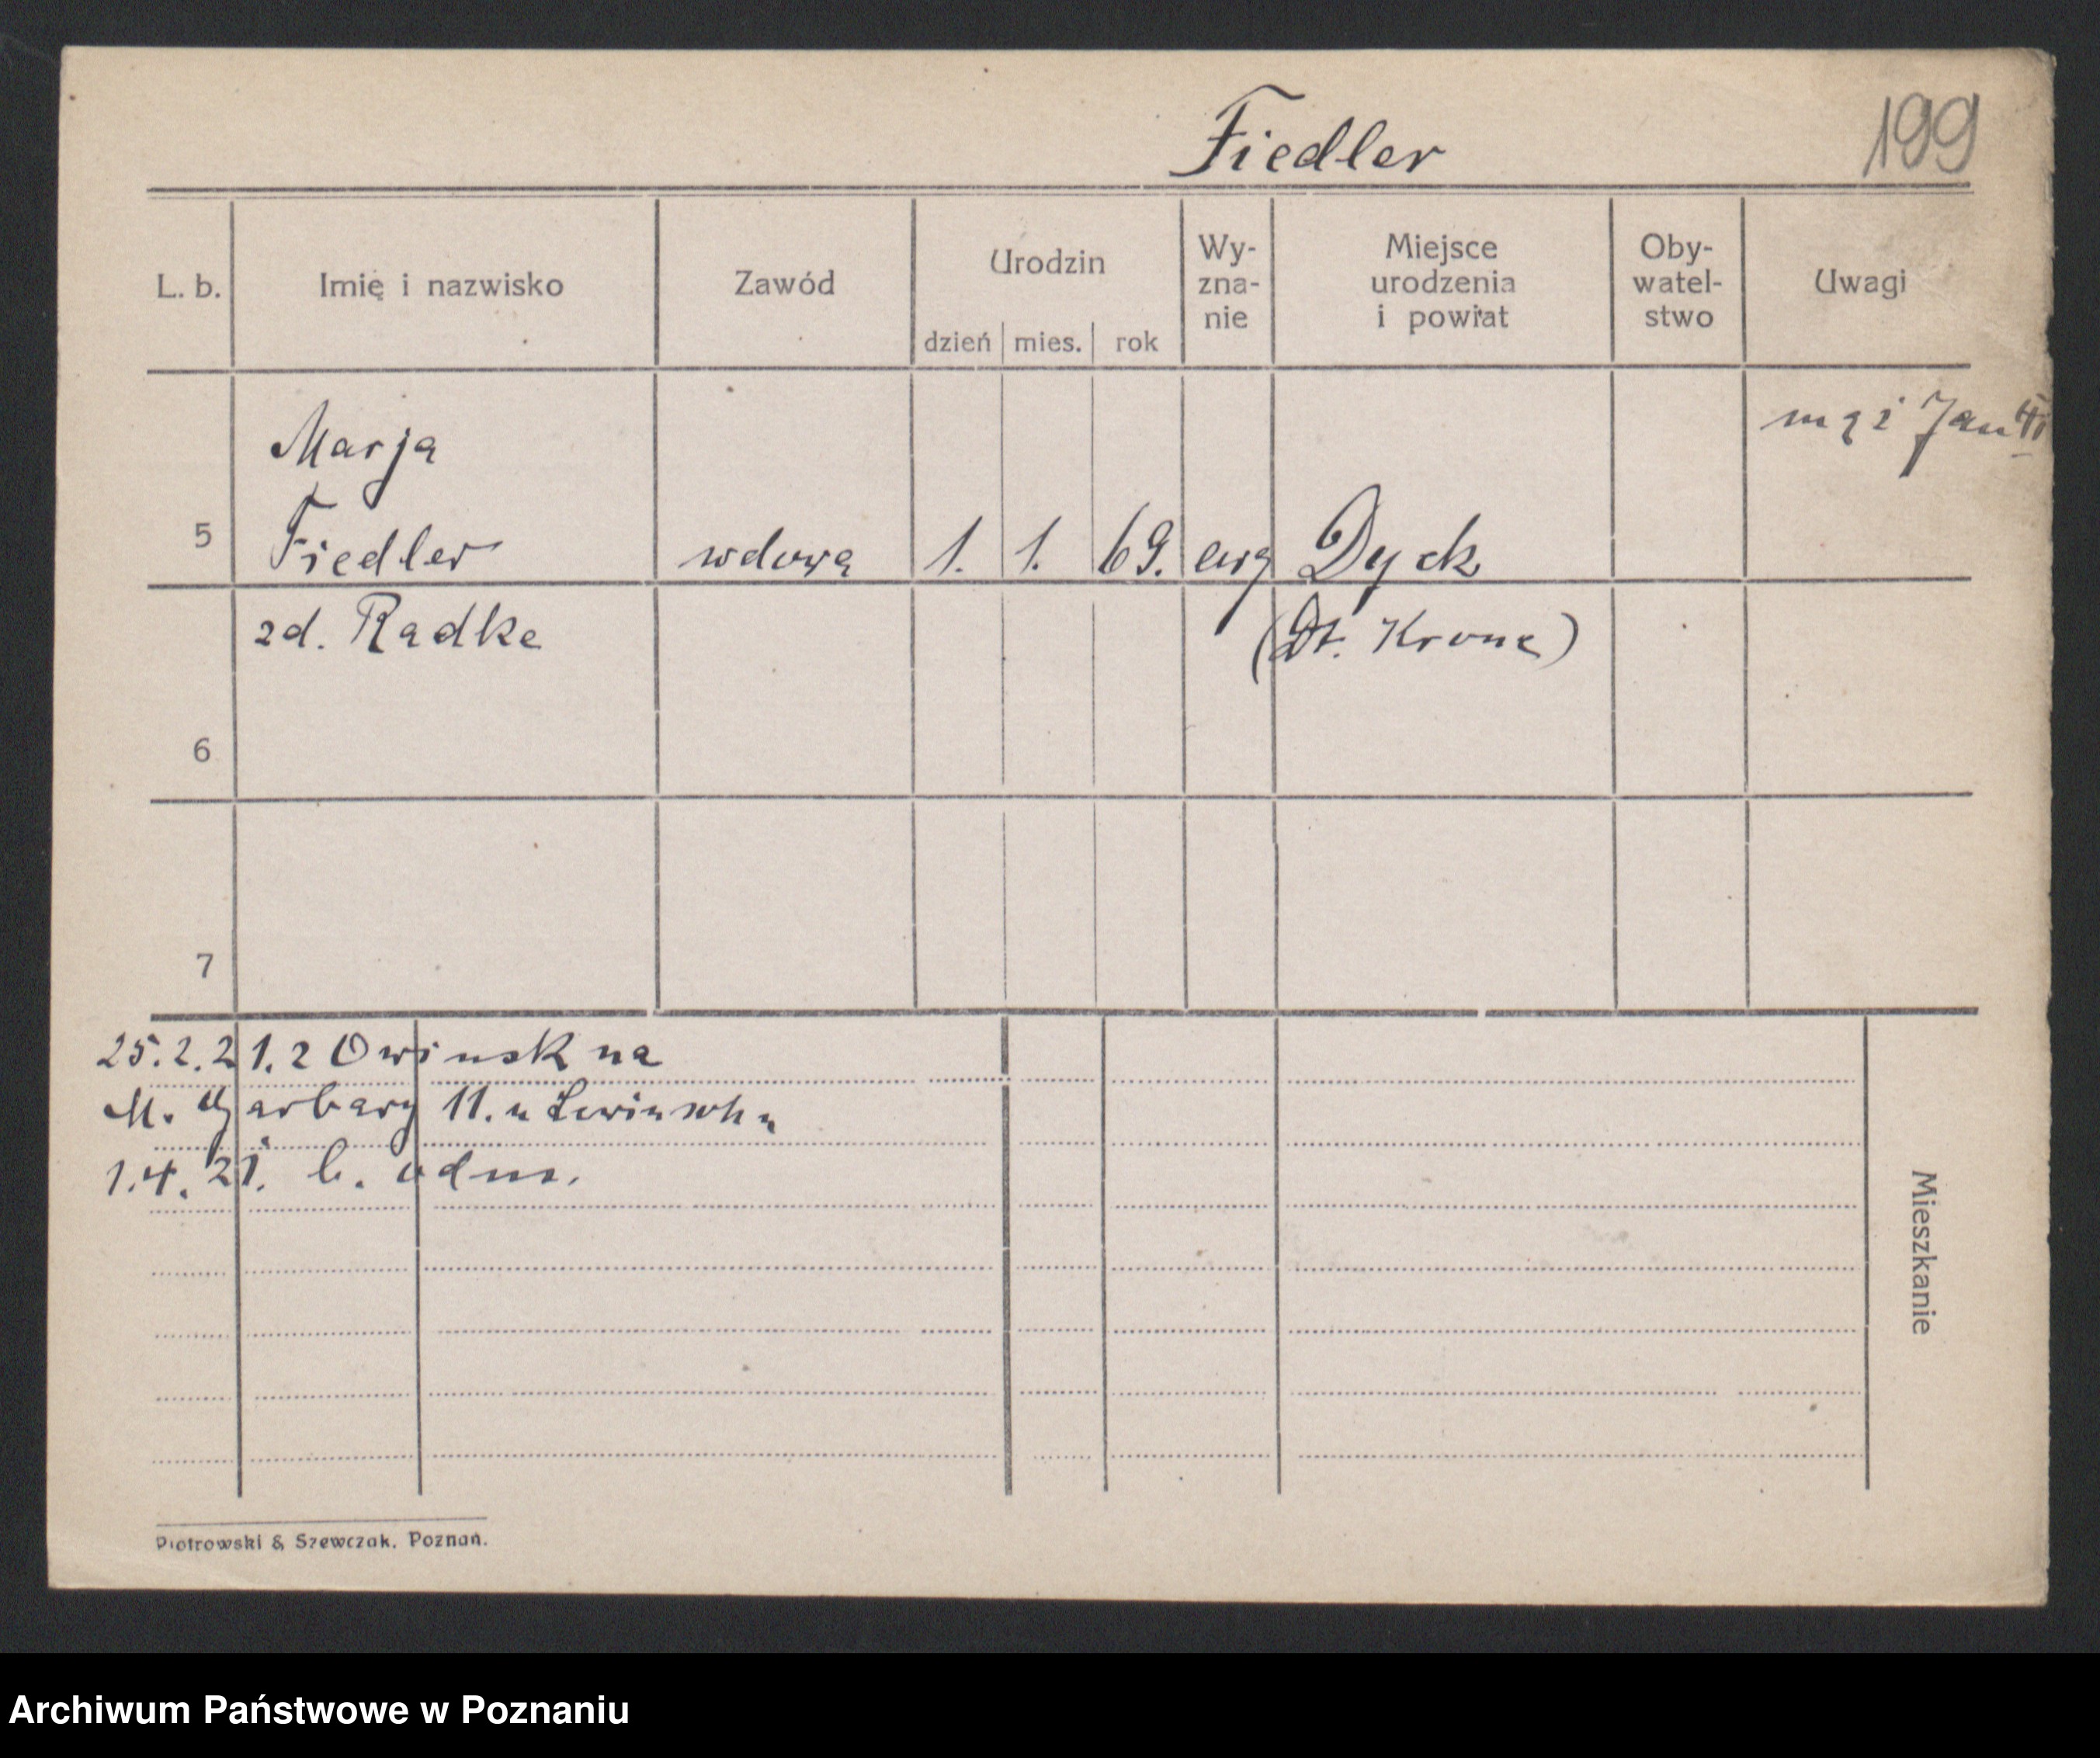 Fiedler
199
L. b.
Imię i nazwisko
Zawód
Urodzin
dzień mies. rok
Wy-
zna-
nie
Miejsce
urodzenia
i powiat
Oby-
watel-
stwo
Uwagi
mąż Jan
Marja
5 Fiedler wdowa 1. 1. 69. ewg Dyck
zd. Radke (Dt. Krone)
6
7
25.2.21. z Owinsk na
M. Garbary 11. u Lewinsohn
1.4.21. b. odm.
Mieszkanie
Piotrowski & Szewczak, Poznań.
Archiwum Państwowe w Poznaniu